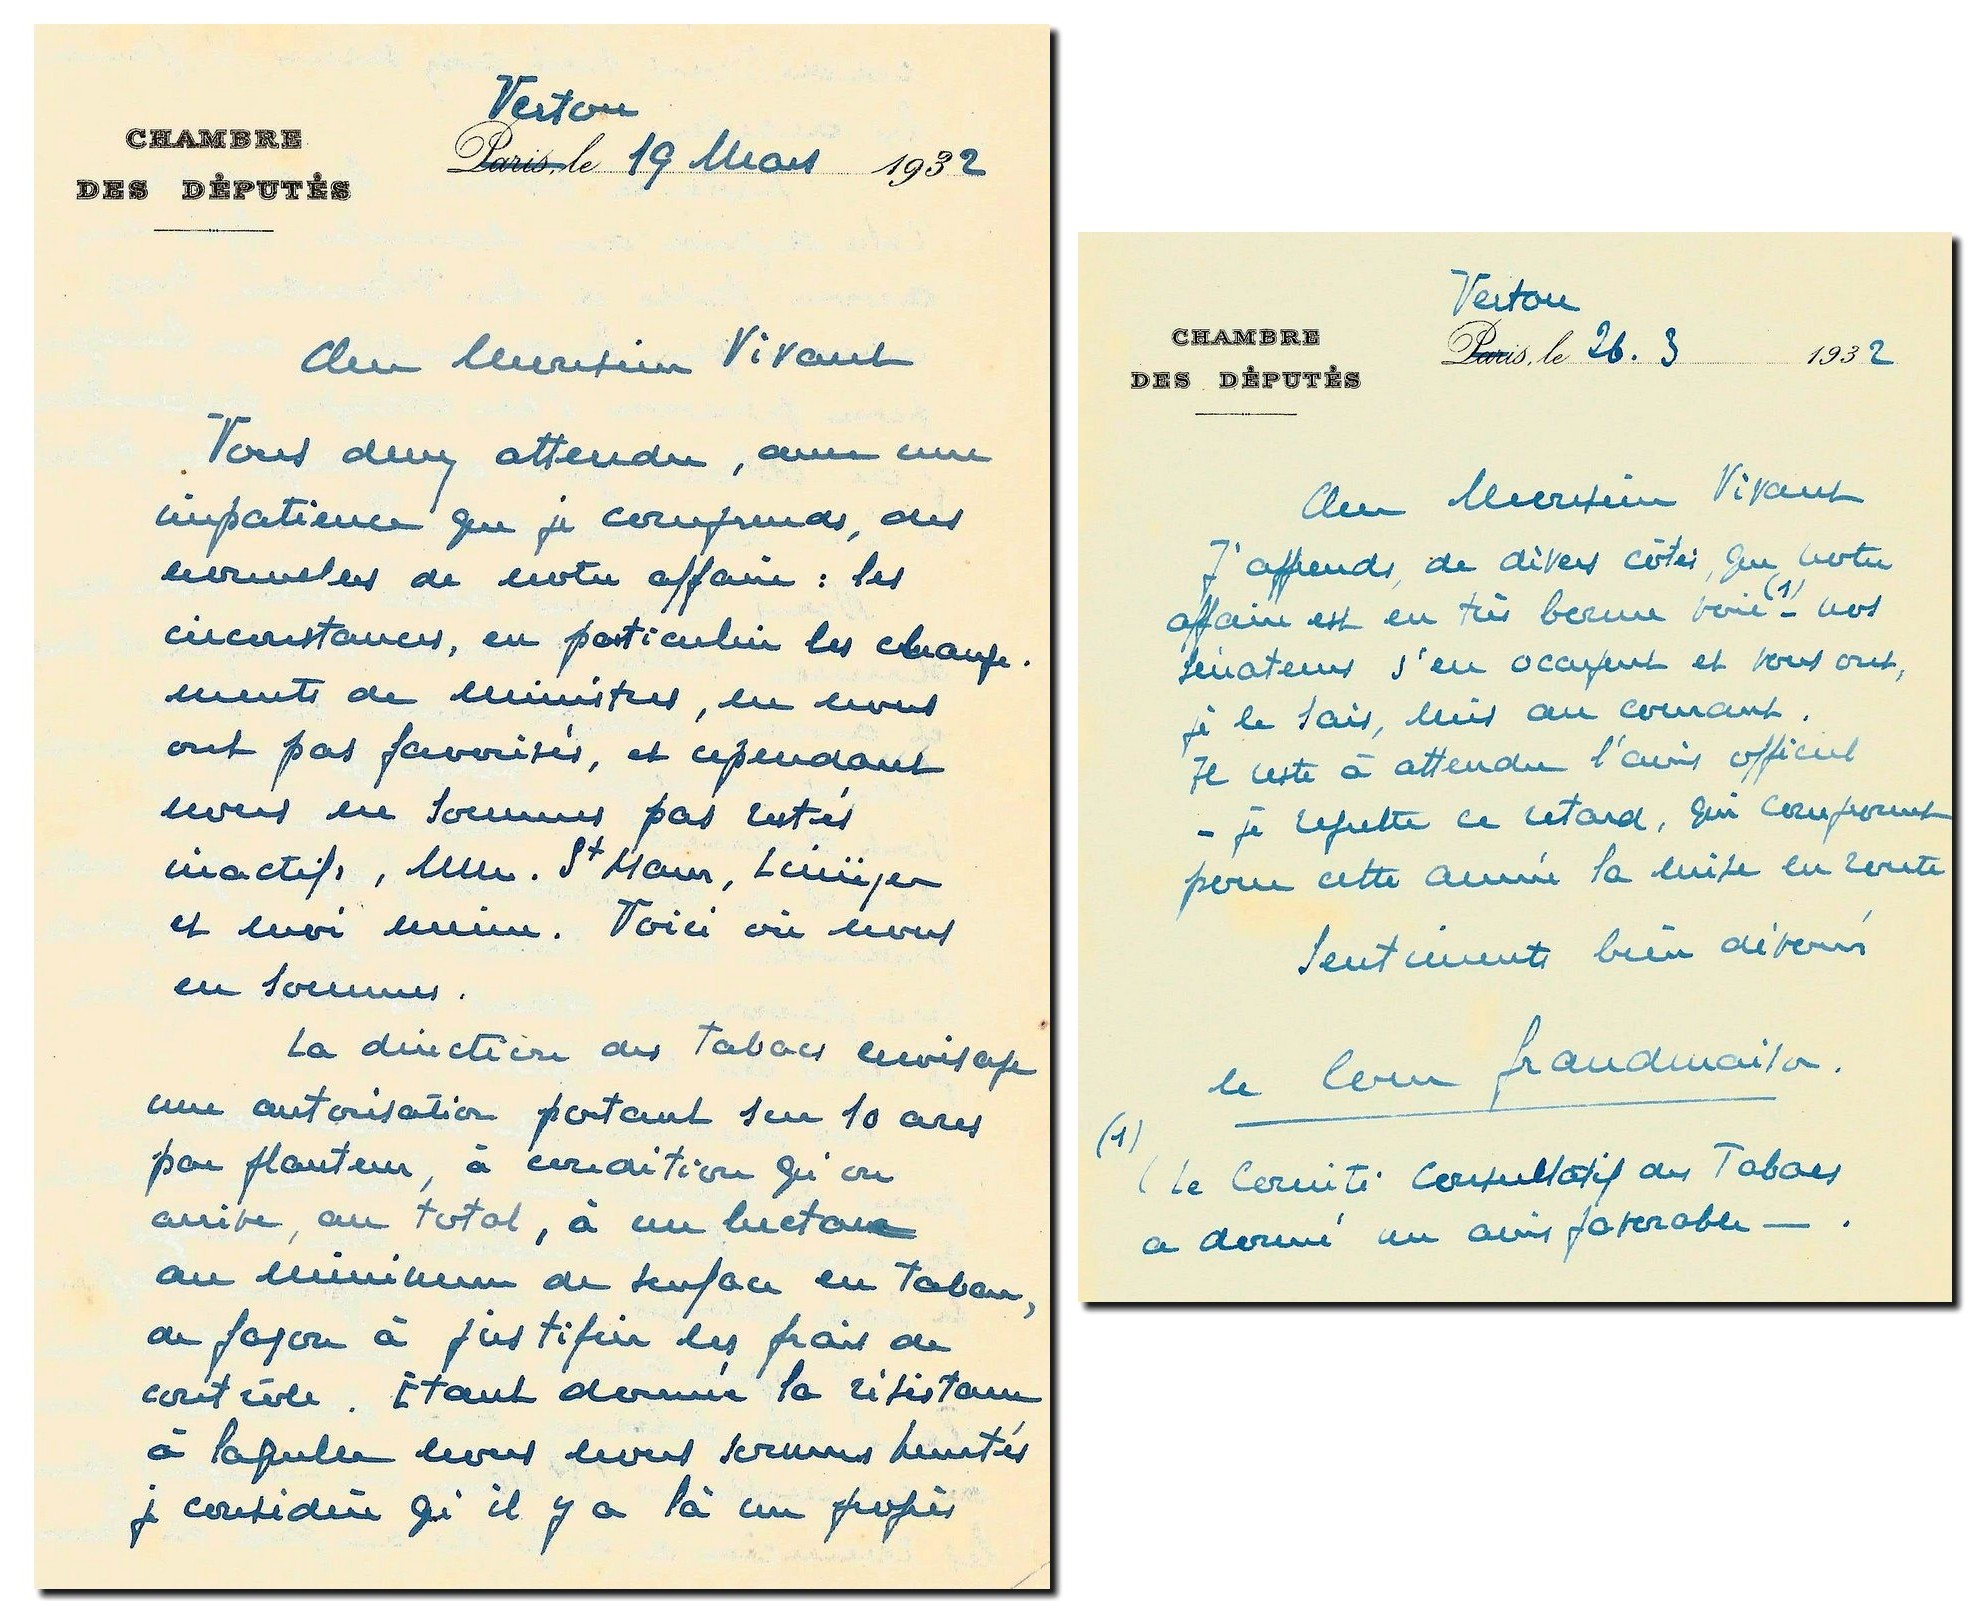 CHAMBRE
DES DÉPUTÉS
Vertou
Paris, le 19 Mars 1932
Cher Monsieur Vivant
Vous devez attendre, avec une
impatience que je comprends, des
nouvelles de notre affaire : les
circonstances, en particulier les change-
ments de ministres, ne nous
ont pas favorisés, et cependant
nous ne sommes pas restés
inactifs, MM. St Maur,
et moi même. Voici où nous
en sommes.
La direction des Tabacs envisage
une autorisation portant sur 10 ares
par planteur, à condition qu'on
arrive, au total, à un hectare
au minimum de surface en Tabac,
de façon à justifier les frais de
contrôle. Étant donnée la résistance
à laquelle nous nous sommes heurtés
je considère qu'il y a là un progrès
CHAMBRE
DES DÉPUTÉS
Vertou
Paris, le 26. 3 1932
Cher Monsieur Vivant
J'apprends, de divers côtés, que notre
affaire est en très bonne voie (1) - nos
sénateurs s'en occupent et vous ont,
je le sais, mis au courant.
Il reste à attendre l'avis officiel
- je regrette ce retard, qui compromet
pour cette année la mise en route
Sentiments bien dévoués
le Cour Grandmaison.
(1)
( Le Comité Consultatif des Tabacs
a donné un avis favorable — .